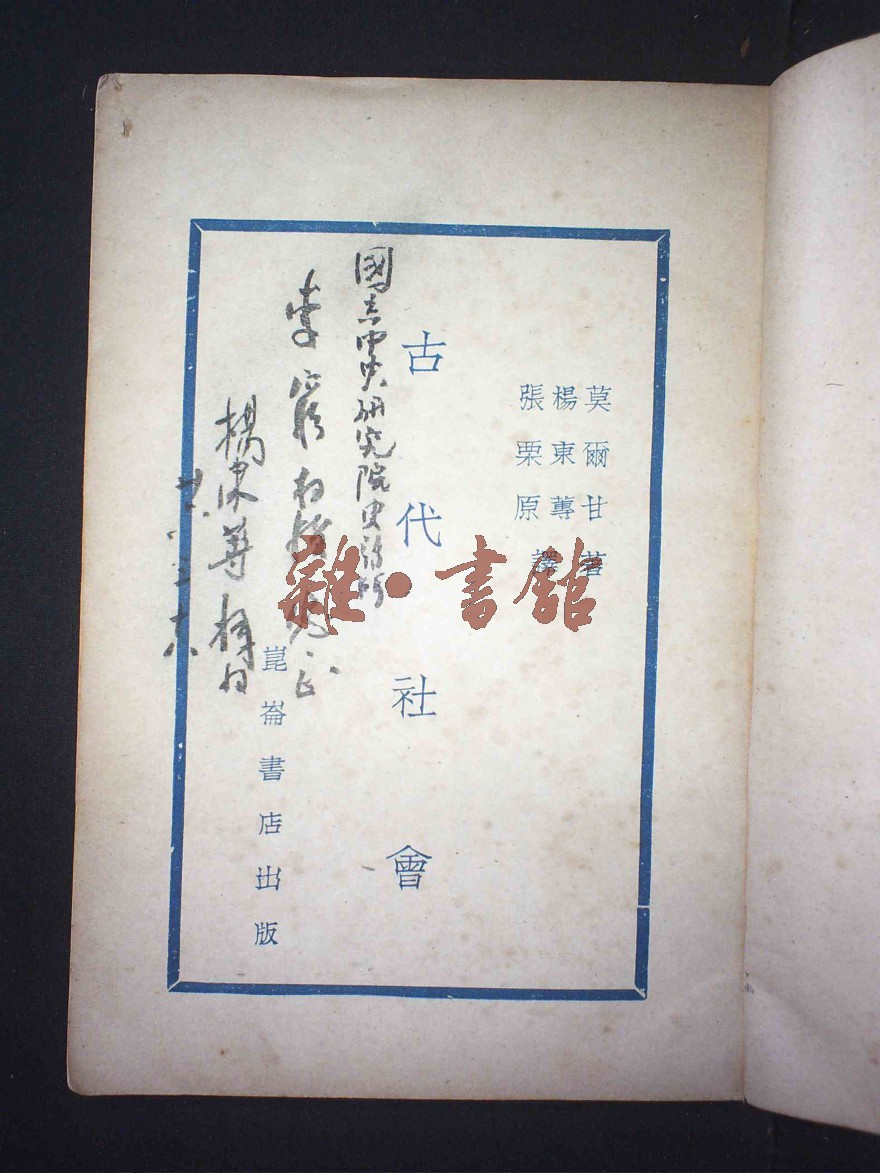 莫爾甘著
楊東蓴
張栗原譯
古代社會
國立中央研究院史語所
李
正
楊東蓴
崑崙書店出版
雜·書館